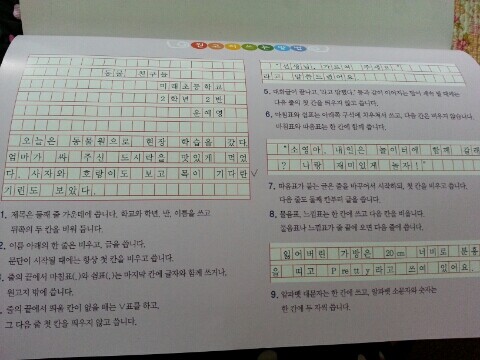 원고지 쓰는 방법
동물 친구들
미래초등학교
2학년 2반
윤예영
오늘은 동물원으로 현장 학습을 갔다.
엄마가 싸 주신 도시락을 맛있게 먹었
다. 사자와 호랑이도 보고 목이 기다란
기린도 보았다.
1. 제목은 둘째 줄 가운데에 씁니다. 학교와 학년, 반, 이름을 쓰고
뒤쪽의 두 칸을 비워 둡니다.
2. 이름 아래의 한 줄은 비우고, 글을 씁니다.
문단이 시작될 때에는 항상 첫 칸을 비우고 씁니다.
3. 줄의 끝에서 마침표(.)와 쉼표(,)는 마지막 칸에 글자와 함께 쓰거나,
원고지 밖에 씁니다.
줄의 끝에서 띄울 칸이 없을 때는 ∨표를 하고,
그 다음 줄 첫 칸을 띄우지 않고 씁니다.
"선생님, 가르쳐 주세요."
라고 말씀드렸어요.
5. 대화글이 끝나고, '라고 말했다.' 등과 같이 이어지는 말이 계속 될 때에는
다음 줄의 첫 칸을 비우지 않고 씁니다.
6. 마침표와 쉼표는 아래쪽 구석에 치우쳐서 쓰고, 다음 칸은 비우지 않습니다.
마침표와 따옴표는 한 칸에 함께 씁니다.
"소영아, 내일은 놀이터에 함께 갈래
? 나랑 재미있게 놀자!"
7. 따옴표가 붙는 글은 줄을 바꾸어서 시작하되, 첫 칸을 비우고 씁니다.
다음 줄도 둘째 칸부터 글을 씁니다.
8. 물음표, 느낌표는 한 칸에 쓰고 다음 칸을 비웁니다.
물음표나 느낌표가 줄 끝에 오면 다음 줄에 씁니다.
잃어버린 가방은 20m 너비로 분홍
을 띠고 Pretty라고 쓰여 있어요.
9. 알파벳 대문자는 한 칸에 쓰고, 알파벳 소문자와 숫자는
한 칸에 두 자씩 씁니다.